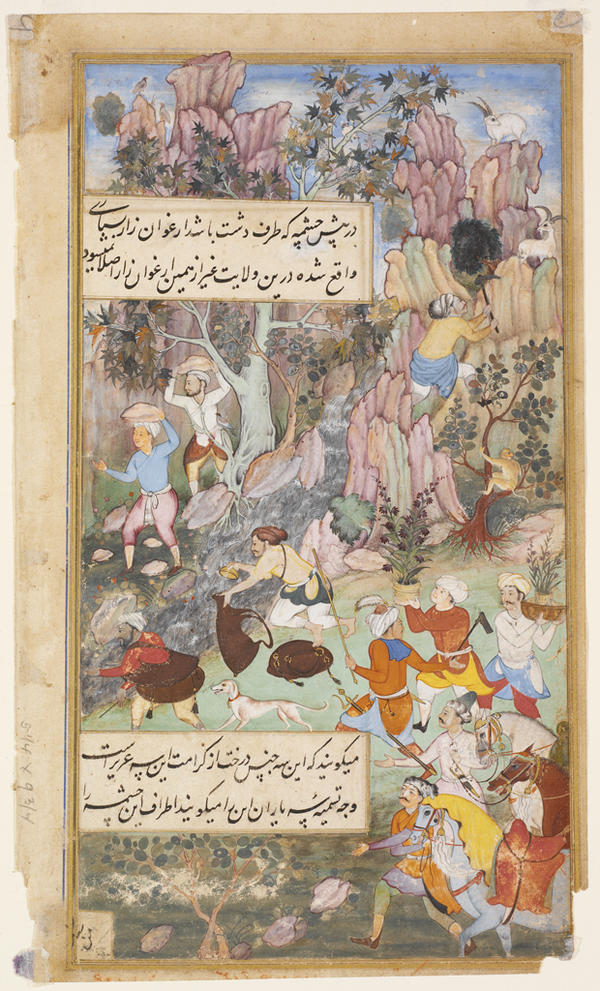 در پیش چشمه که طرف دشت باشد ارغوان زار بسیاری
واقع شده درین ولایت غیر از همین ارغوان زار اصلا نمیشود
میکویند که این سه جنس درخت از کرامت این سه عزیزست
وجه تسمیه سه یاران این را میکویند اطراف این چشمه را